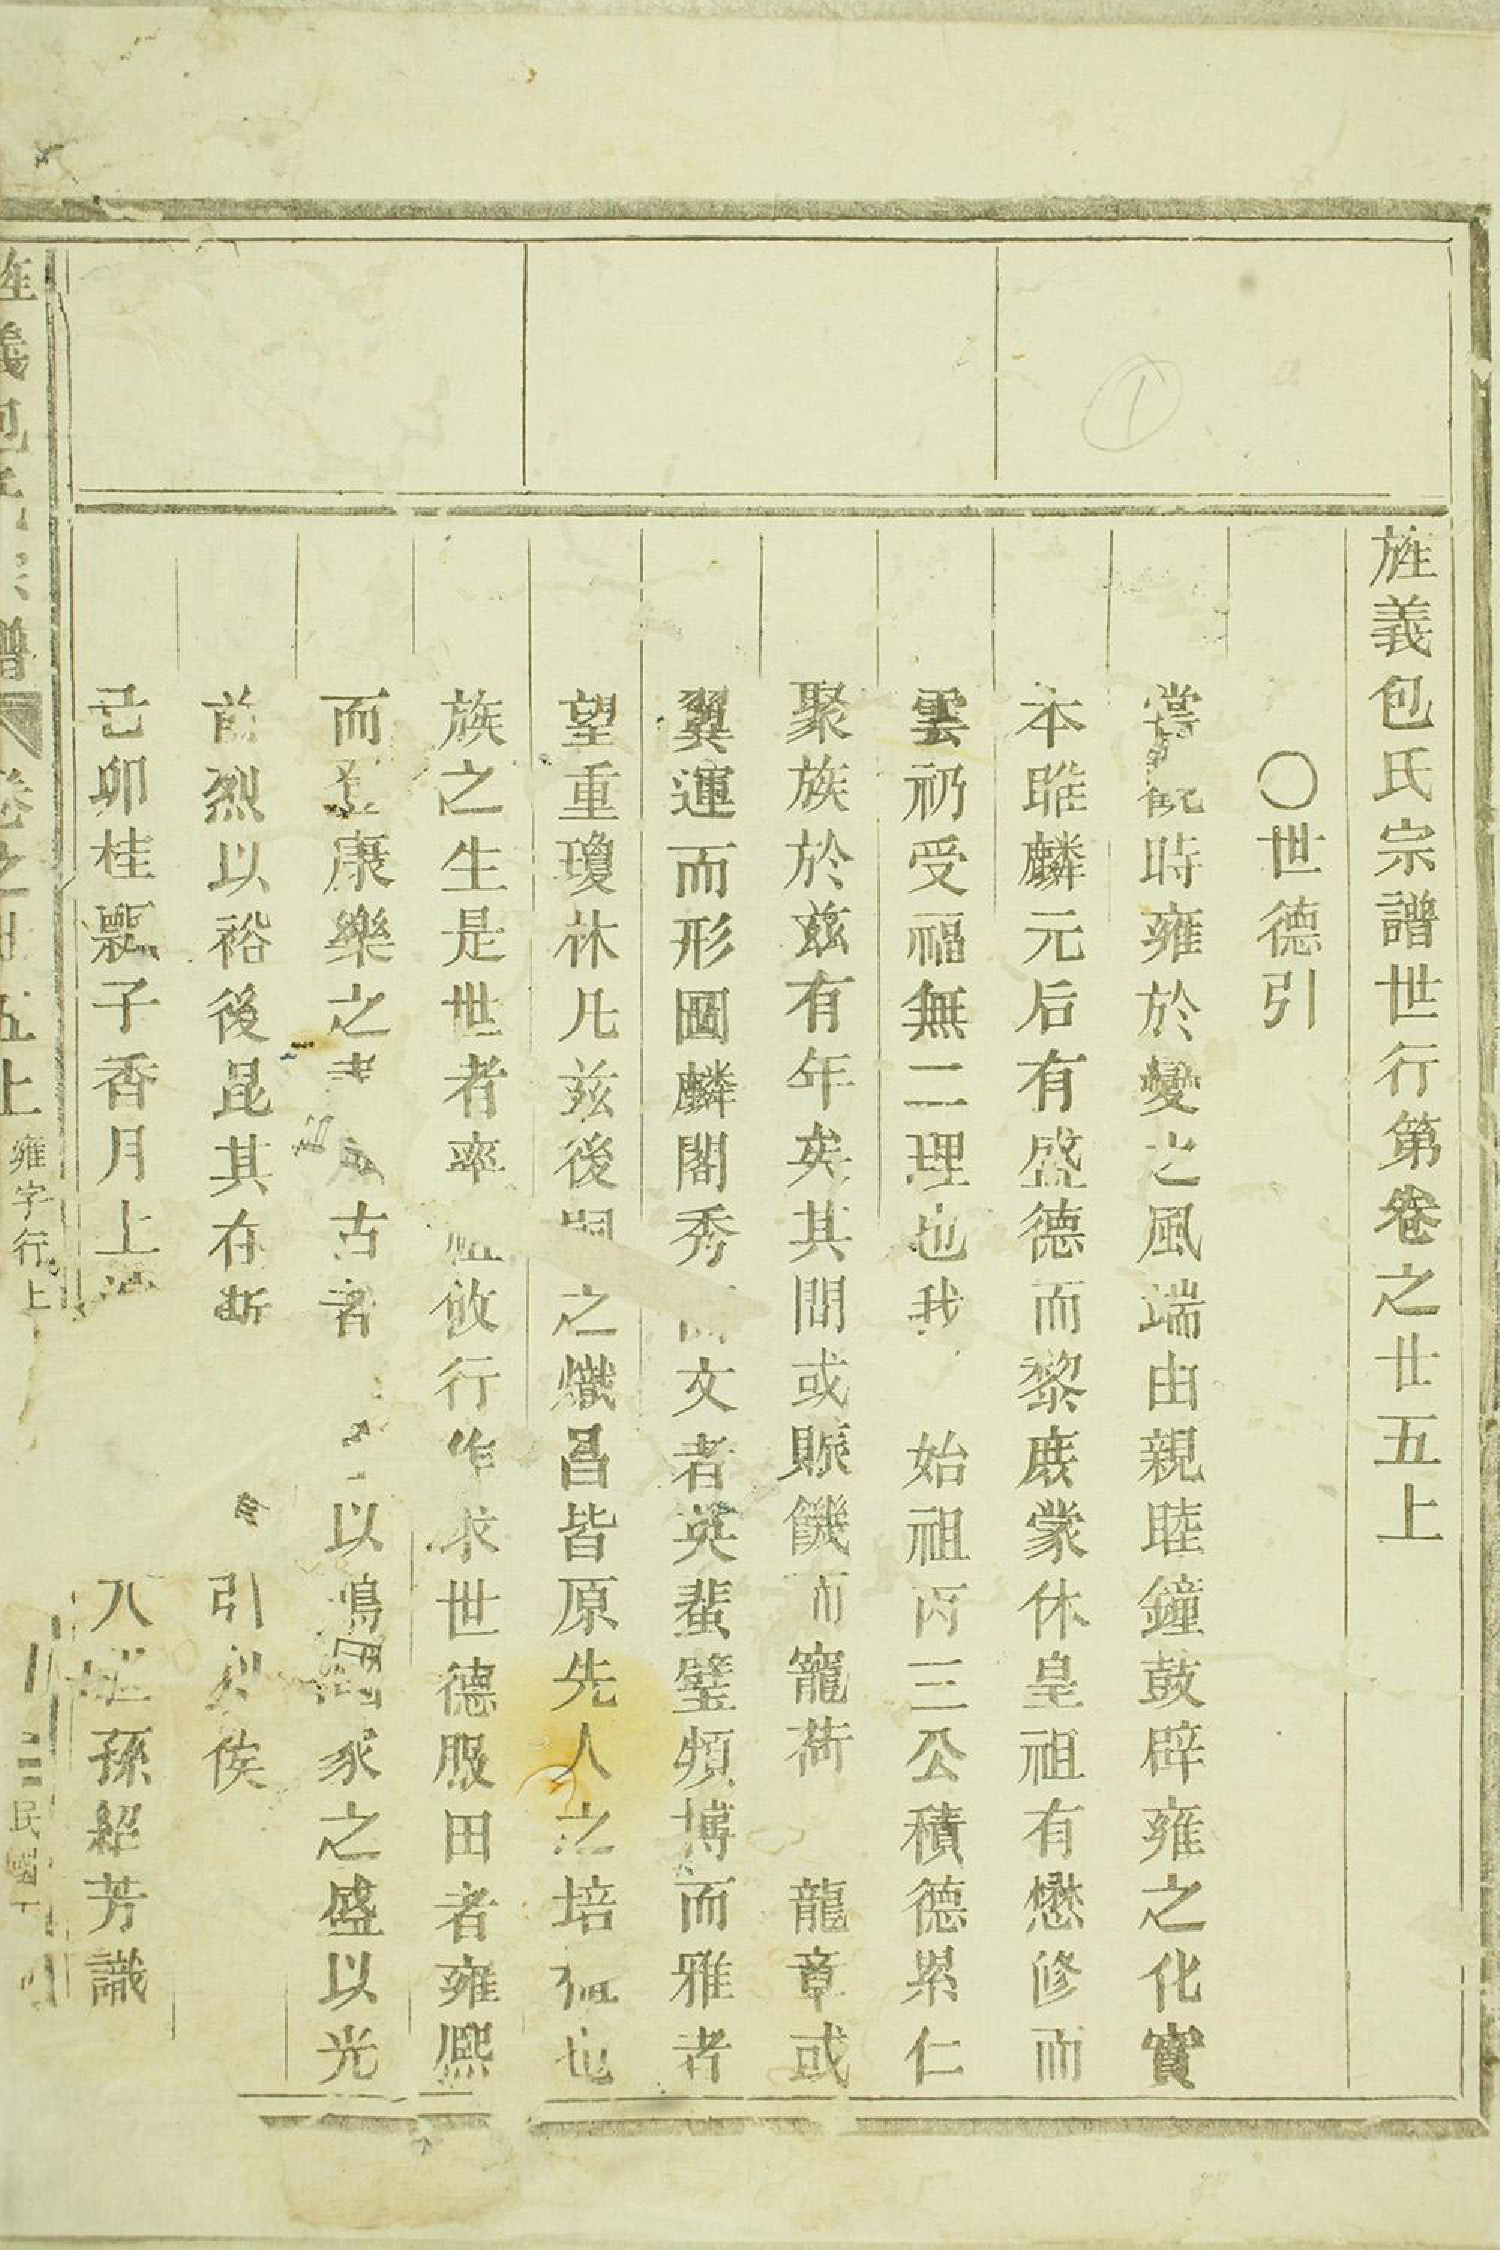 旌義包氏宗譜世行第卷之廿五上
〇世德引
嘗觀時雍於變之風端由親睦鐘鼓辟雍之化實
本雎麟元后有盛德而黎庶蒙休皇祖有懋修而
雲礽受福無二理也我 始祖丙三公積德累仁
聚族於茲有年矣其間或賑饑而寵荷 龍章或
翼運而形圖麟閣秀而文者英蜚璧頖博而雅者
望重瓊林凡茲後嗣之熾昌皆原先人之培植也
族之生是世者率祖攸行作求世德服田者雍熙
而登康樂之 古者 以鳴國家之盛以光
前烈以裕後昆其在斯 引以俟
己卯桂飄子香月上浣
八 孫紹芳識
旌義包氏宗譜
卷之廿五上
雍字行上
一
民國